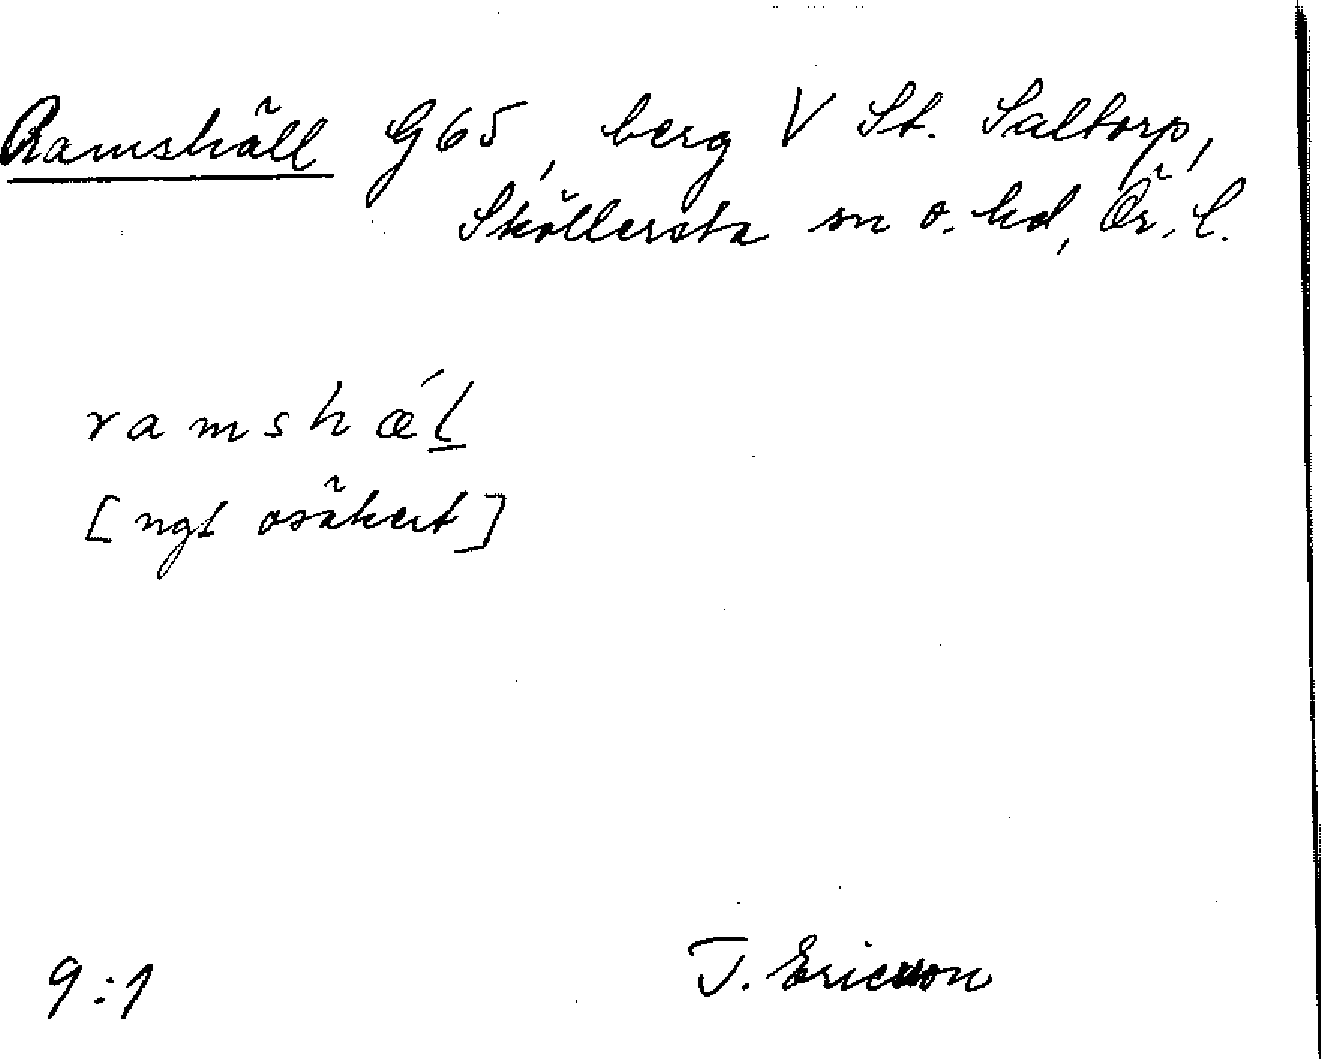 Ramshäll G65, berg V St. Saltorp,
Sköllersta sn o. hd, Ör. l.
ramshǽl
[ngt osäkert]
9:1
J. Ericson